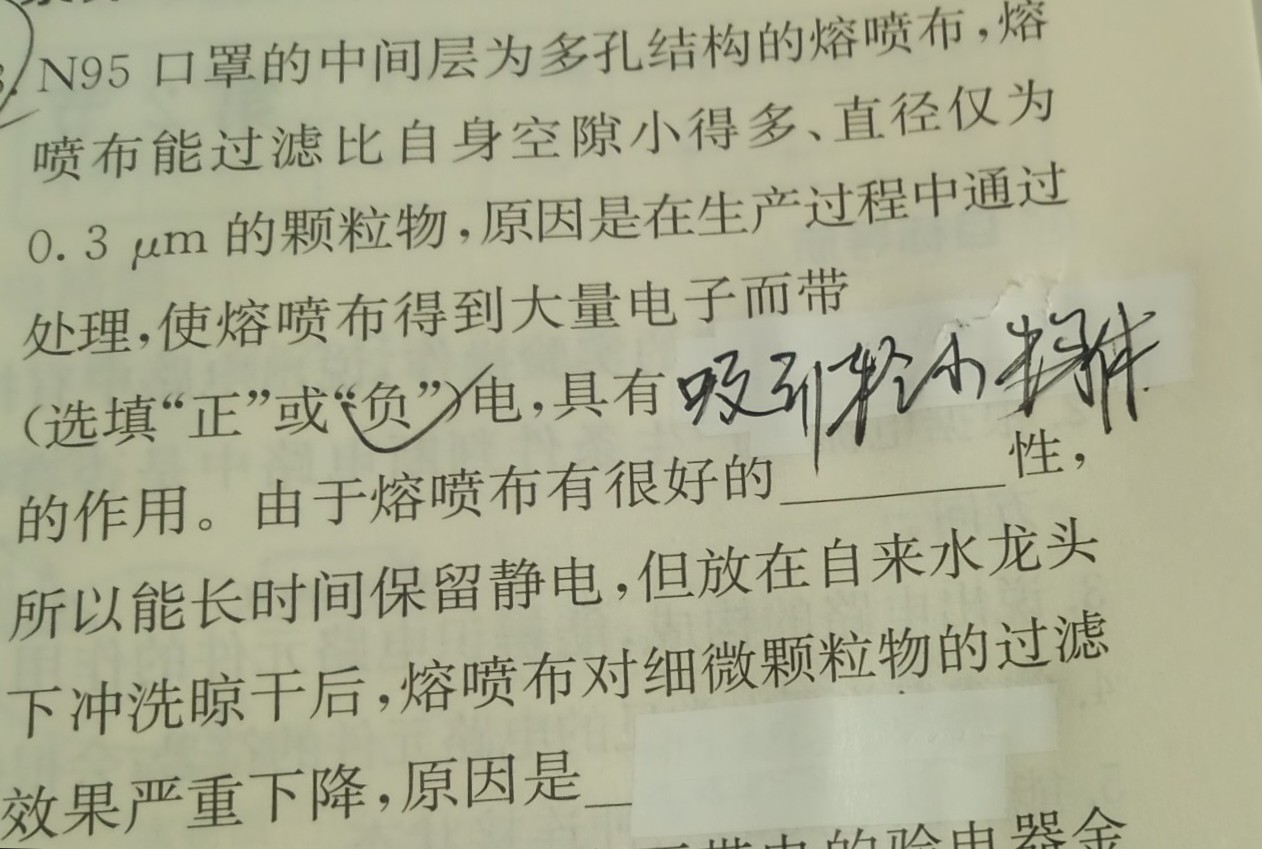 N95 口罩的中间层为多孔结构的熔喷布,熔
喷布能过滤比自身空隙小得多、直径仅为
0.3 μm 的颗粒物,原因是在生产过程中通过
处理,使熔喷布得到大量电子而带
(选填“正”或“负”)电,具有 吸引轻小
的作用。由于熔喷布有很好的________性,
所以能长时间保留静电,但放在自来水龙头
下冲洗晾干后,熔喷布对细微颗粒物的过滤
效果严重下降,原因是_
带电的验电器金